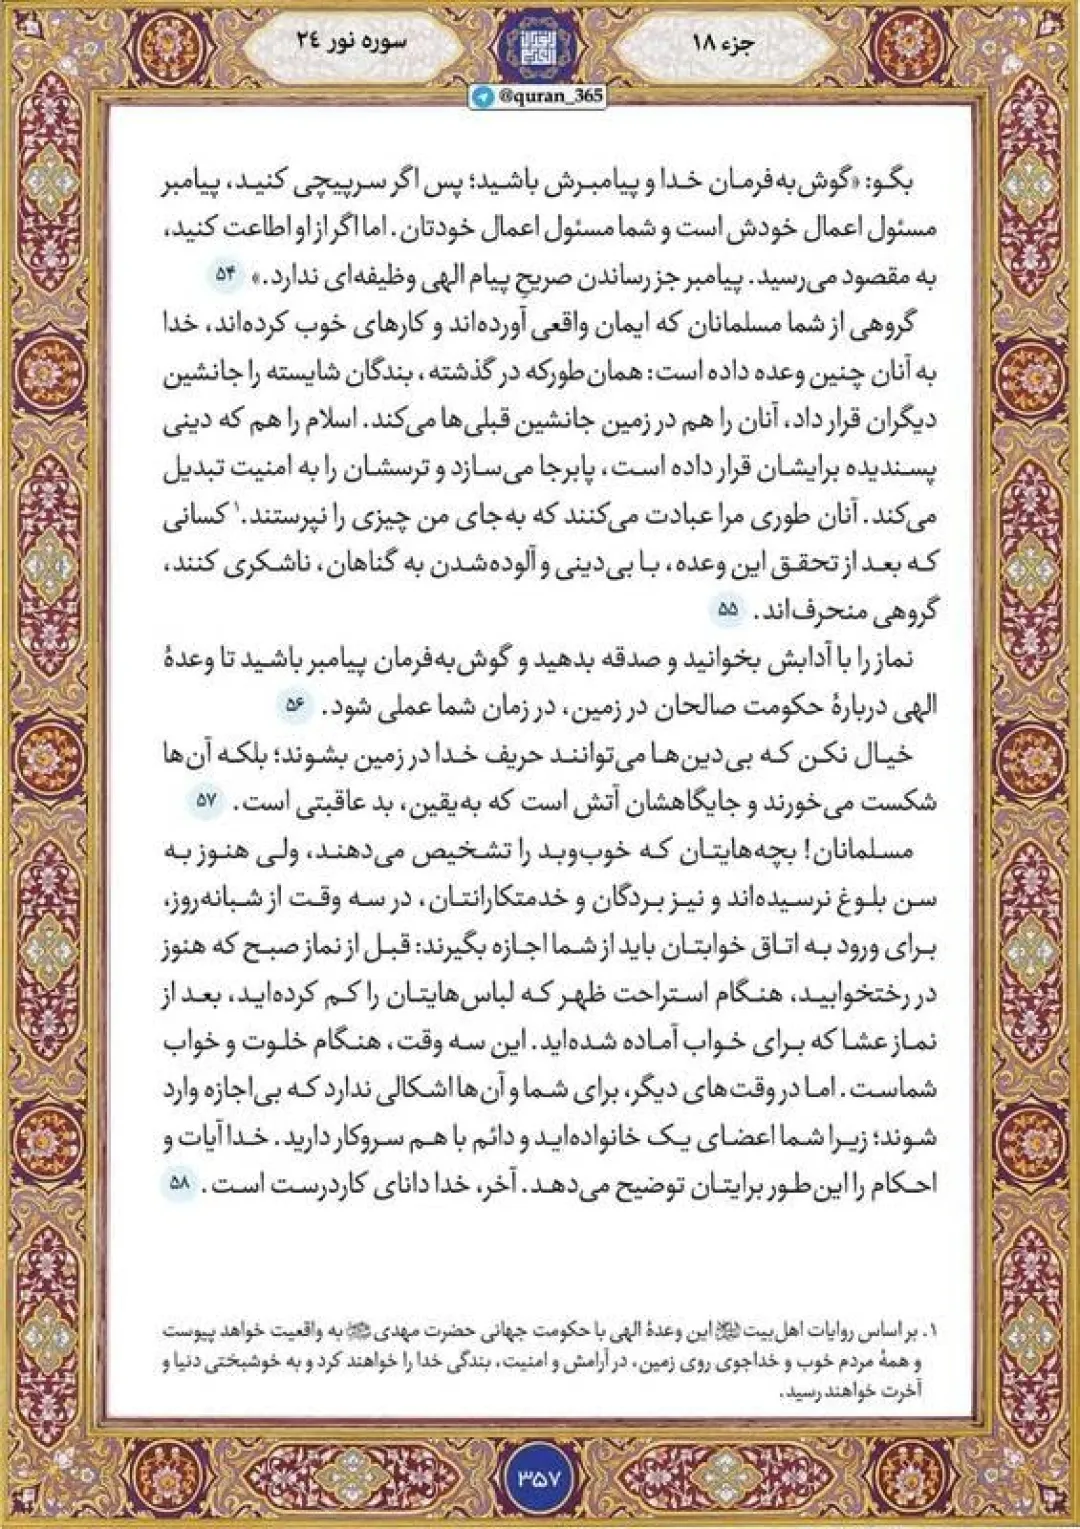 جزء ۱۸
سوره نور ۲۴
@quran_365
بگو: «گوش‌به‌فرمان خدا و پیامبرش باشید؛ پس اگر سرپیچی کنید، پیامبر
مسئول اعمال خودش است و شما مسئول اعمال خودتان. اما اگر از او اطاعت کنید،
به مقصود می‌رسید. پیامبر جز رساندن صریحِ پیام الهی وظیفه‌ای ندارد.» ۵۴
گروهی از شما مسلمانان که ایمان واقعی آورده‌اند و کارهای خوب کرده‌اند، خدا
به آنان چنین وعده داده است: همان‌طورکه در گذشته، بندگان شایسته را جانشین
دیگران قرار داد، آنان را هم در زمین جانشین قبلی‌ها می‌کند. اسلام را هم که دینی
پسندیده برایشان قرار داده است، پابرجا می‌سازد و ترسشان را به امنیت تبدیل
می‌کند. آنان طوری مرا عبادت می‌کنند که به‌جای من چیزی را نپرستند.۱ کسانی
که بعد از تحقق این وعده، با بی‌دینی و آلوده‌شدن به گناهان، ناشکری کنند،
گروهی منحرف‌اند. ۵۵
نماز را با آدابش بخوانید و صدقه بدهید و گوش‌به‌فرمان پیامبر باشید تا وعدهٔ
الهی دربارهٔ حکومت صالحان در زمین، در زمان شما عملی شود. ۵۶
خیال نکن که بی‌دین‌ها می‌توانند حریف خدا در زمین بشوند؛ بلکه آن‌ها
شکست می‌خورند و جایگاهشان آتش است که به‌یقین، بد عاقبتی است. ۵۷
مسلمانان! بچه‌هایتان که خوب‌وبد را تشخیص می‌دهند، ولی هنوز به
سن بلوغ نرسیده‌اند و نیز بردگان و خدمتکارانتان، در سه وقت از شبانه‌روز،
برای ورود به اتاق خوابتان باید از شما اجازه بگیرند: قبل از نماز صبح که هنوز
در رختخوابید، هنگام استراحت ظهر که لباس‌هایتان را کم کرده‌اید، بعد از
نماز عشا که برای خواب آماده شده‌اید. این سه وقت، هنگام خلوت و خواب
شماست. اما در وقت‌های دیگر، برای شما و آن‌ها اشکالی ندارد که بی‌اجازه وارد
شوند؛ زیرا شما اعضای یک خانواده‌اید و دائم با هم سروکار دارید. خدا آیات و
احکام را این‌طور برایتان توضیح می‌دهد. آخر، خدا دانای کاردرست است. ۵۸
۱. بر اساس روایات اهل‌بیت این وعدهٔ الهی با حکومت جهانی حضرت مهدی به واقعیت خواهد پیوست
و همهٔ مردم خوب و خداجوی روی زمین، در آرامش و امنیت، بندگی خدا را خواهند کرد و به خوشبختی دنیا و
آخرت خواهند رسید.
۳۵۷